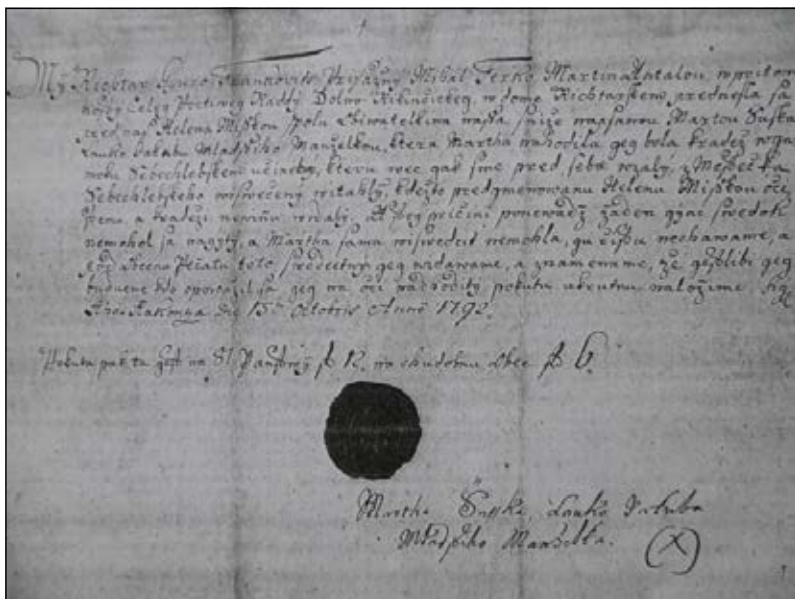 My Richtar Juro Frankovits Prisažný Mihál Ferko, Martin Antalou, w pritom
nosty Celeg Poctiweg Raddý Dolno Rikinčickeg, w dome Richtarskem prednesla sa
pred nas Helena Miskou spolu Obiwatelkina nassa niže napsanou Martou Suska
Lauko Jakuba Mladssiho Manželkou, ktera Martha nahodila geg bola kradež w ga
moku Sebechlebskem, kteru wec gak sme pred sebe wzaly, z Mestečka
Sebechlebskeho wiswečený witahly, kdežto predgmenowanu Helenu Miskou oči
stenu a kradeži newinnu widaly. Z teg pričini ponewadž žaden swedok
nemohol sa nagyty, a Martha sama wiswedcit nemohla, pri čistu nechawame, a
pod Obecnu Pečatu toto swedectwy geg widawame, a znamename, že gestlibi geg
opowažil sa geg na oči nadhodity pokutu ukrutnu naložime. Sig
die 15ta Octobris Anno 1792.
Pokuta pak ta gest na St. Panstwy f 12. na chudobnu Obec f 6.
Martha Susska, Lauko Jakuba
Mladssiho Manželka. (X)